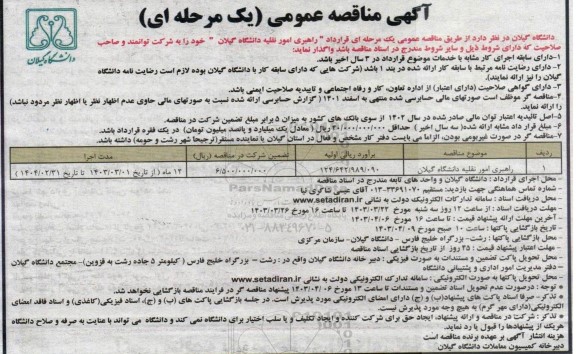 آگهی مناقصه عمومی (یک مرحله ای)
دانشگاه گیلان
دانشگاه گیلان در نظر دارد از طریق مناقصه عمومی یک مرحله ای قرارداد "راهبری امور نقلیه دانشگاه گیلان" خود را به شرکت توانمند و صاحب
صلاحیت که دارای شروط ذیل و سایر شروط مندرج در اسناد مناقصه باشد واگذار نماید:
۱-دارای سابقه اجرای کار مشابه با خدمات موضوع قرارداد در ۳ سال اخیر باشد.
۲- دارای رضایت نامه مرتبط با سابقه کار ارائه شده در بند ۱ باشد (شرکت هایی که دارای سابقه کار با دانشگاه گیلان بوده لازم است رضایت نامه دانشگاه
گیلان را نیز ارائه نمایند).
۳- دارای گواهی صلاحیت (دارای اعتبار) از اداره تعاون، کار و رفاه اجتماعی و تاییدیه صلاحیت ایمنی باشد.
۴-مناقصه گر موظف است صورتهای مالی حسابرسی شده منتهی به اسفند ۱۴۰۱ (گزارش حسابرسی ارائه شده نسبت به صورتهای مالی حاوی عدم اظهار نظر یا اظهار نظر مردود نباشد)
را ارائه نماید.
۵-اصل تائیدیه اعتبار توان مالی صادر شده در سال ۱۴۰۲ از سوی بانک های کشور به میزان ۵ برابر مبلغ تضمین شرکت در مناقصه.
۷-مناقصه گر در صورت غیربومی بودن، الزاما می بایست دفتر کار مشخص و فعال در استان گیلان با نماینده مستقر(ترجیحا شهر رشت و حومه) داشته باشد.
ردیف موضوع مناقصه برآورد ریالی اولیه تضمین شرکت در مناقصه (ریال) مدت اجرا
۱ راهبری امور نقلیه دانشگاه گیلان ۱۲۴/۶۴۲/۹۸۹/۰۹۰ ۶/۵۰۰/۰۰۰/۰۰۰ ۱۲ ماه (از تاریخ ۱۴۰۳/۰۳/۰۱ تا تاریخ ۱۴۰۴/۰۲/۳۱)
محل اجرای قرارداد: دانشگاه گیلان و واحد های تابعه مندرج در اسناد مناقصه
محل دریافت اسناد: سامانه تدارکات الکترونیک دولت به نشانی www.setadiran.ir
مهلت دریافت اسناد: از ساعت ۱۲ روز سه شنبه مورخ ۱۴۰۳/۰۳/۲۲ تا ساعت ۱۶ مورخ ۱۴۰۳/۰۳/۲۶
آخرین مهلت ارائه پیشنهاد قیمت: تا ساعت ۱۶ مورخ ۱۴۰۳/۰۴/۰۶
تاریخ بازگشایی پاکتها: ساعت ۱۰ صبح مورخ ۱۴۰۳/۰۴/۰۹
محل بازگشایی پاکتها: رشت- بزرگراه خلیج فارس - دانشگاه گیلان- سازمان مرکزی
مهلت اعتبار پیشنهاد قیمت: ۲۵ روز از تاریخ بازگشایی اسناد
محل تحویل پاکت تضمین و مستندات به صورت فیزیکی: دبیر خانه دانشگاه گیلان واقع در: رشت – بزرگراه خلیج فارس (کیلومتر ۵ جاده رشت به قزوین)- مجتمع دانشگاه گیلان
– دفتر مدیریت امور اداری و پشتیبانی دانشگاه
محل تحویل پاکتها به صورت الکترونیکی: سامانه تدارک الکترونیکی دولت به نشانی www.setadiran.ir
* توجه: درصورت عدم تحویل اسناد تضمین و مستندات تا ساعت ۱۳ مورخ ۱۴۰۳/۰۴/۰۶ پیشنهاد مناقصه گر در فرایند مناقصه بازگشایی نخواهد شد.
* تذکر: صرفا اسناد پاکت های پیشنهاد(ب) و (ج) دارای امضای الکترونیکی مورد پذیرش است. در جلسه بازگشایی پاکت های (ب) و (ج)، اسناد فیزیکی(کاغذی) و اسناد فاقد امضای
الکترونیکی(دارای مهر گرم) به هیچ وجه مورد پذیرش نیست.
* تذکر: شرکت در مناقصه و ارائه پیشنهاد ایجاد حق برای شرکت کننده و ایجاد تکلیف و یا سلب اختیار برای دانشگاه نمی کند و دانشگاه می تواند با عنایت به صرفه و صلاح دانشگاه
هریک از پیشنهادها را قبول یا رد نماید.
هزینه انتشار آگهی بر عهده برنده مناقصه است
دبیرخانه کمیسیون معاملات دانشگاه گیلان